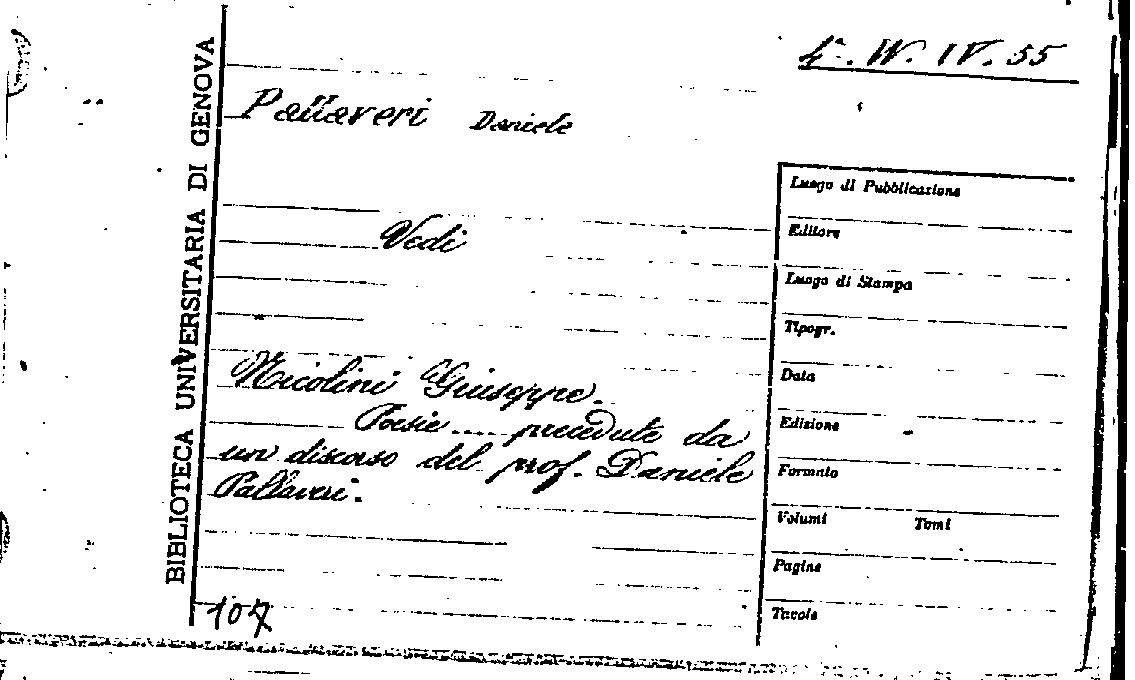 4ª. W. IV. 55
Pallaveri Daniele
Vedi
Nicolini Giuseppe.
Poesie .... precedute da
un discorso del prof. Daniele
Pallaveri.
107
BIBLIOTECA UNIVERSITARIA DI GENOVA
Luogo di Pubblicazione
Editore
Luogo di Stampa
Tipogr.
Data
Edizione
Formato
Volumi Tomi
Pagine
Tavole